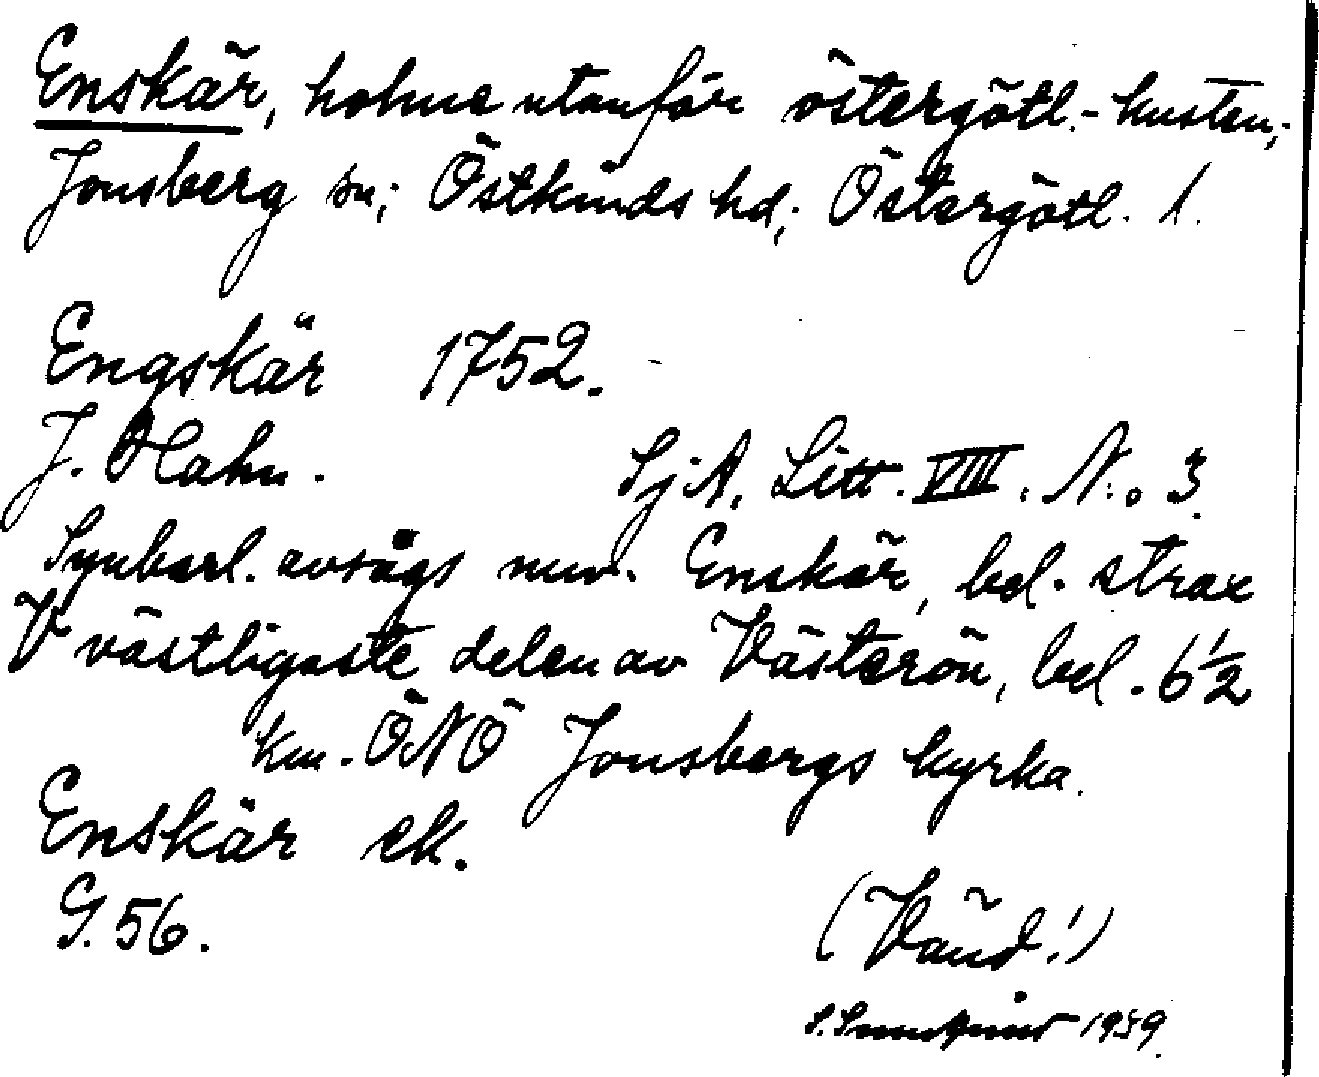 Enskär, holme utanför östergötl.-kusten,
Jonsberg sn; Östkinds hd; Östergötl. l.
Engskär 1752.
J. Hahn. SjA, Litt. VIII. N:o 3.
Synbarl. avsågs nuv. Enskär, bel. strax
V västligaste delen av Västerön, bel. 6 ½
km. ÖNÖ Jonsbergs kyrka.
Enskär ek.
G. 56.
(Vänd!)
1959.